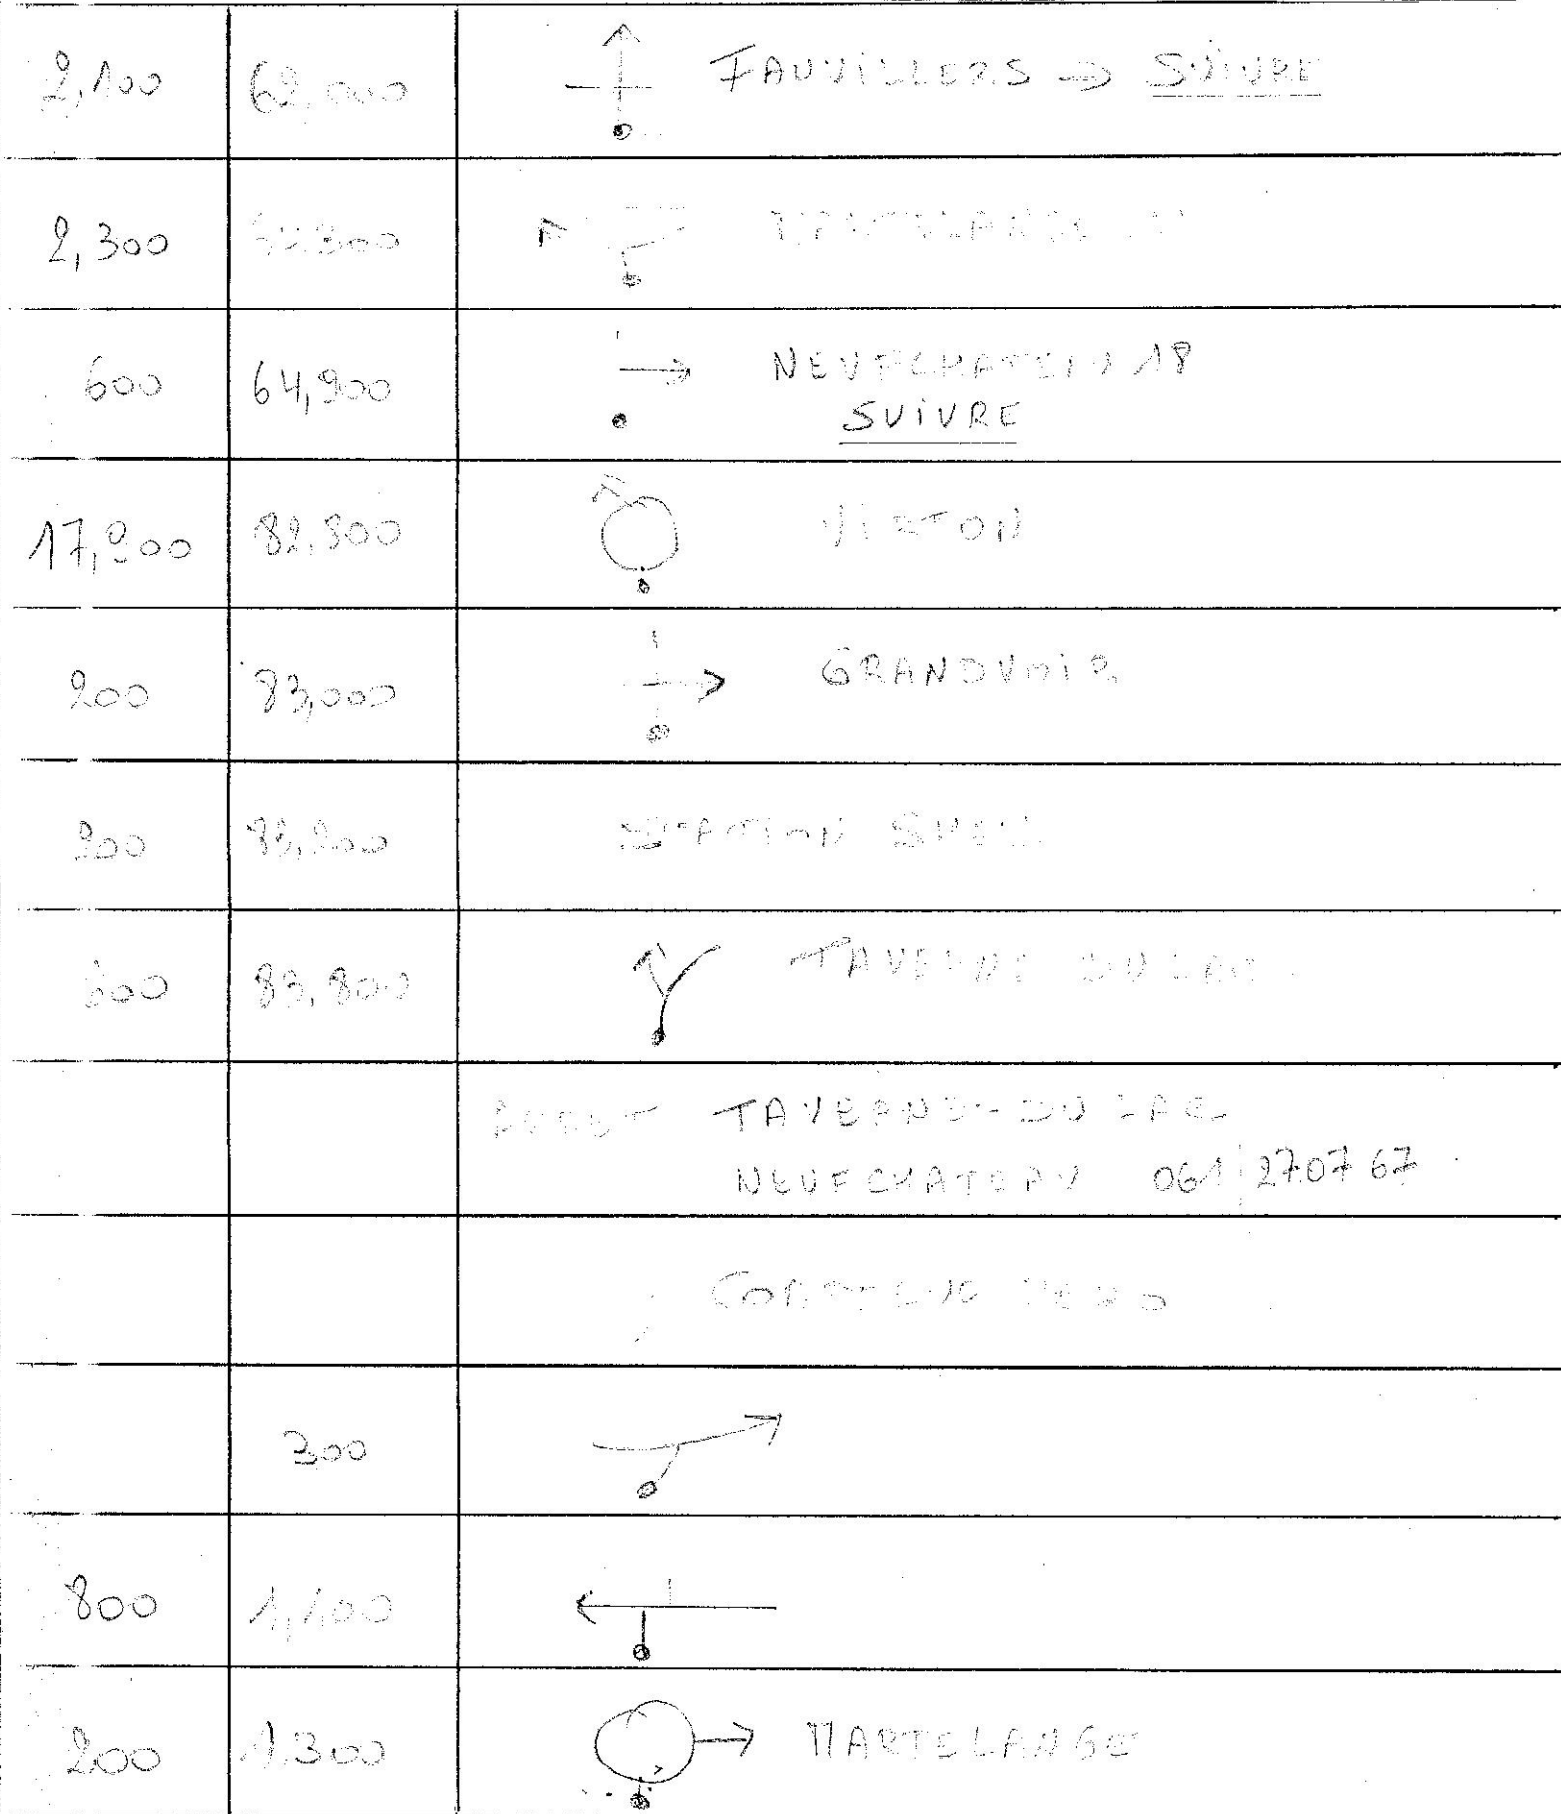 2,100 62,000 FAUVILLERS → SUIVRE
2,300
600 64,900 NEUFCHATEAU 18
SUIVRE
17,900 82,800 VIRTON
200 83,000 GRANDVOIR
200 83,200 STATION SHELL
600 83,800 TAVERNE DU LAC
TAVERNE DU LAC
NEUFCHATEAU 061/270767
300
800 1,100
200 1.300 MARTELANGE